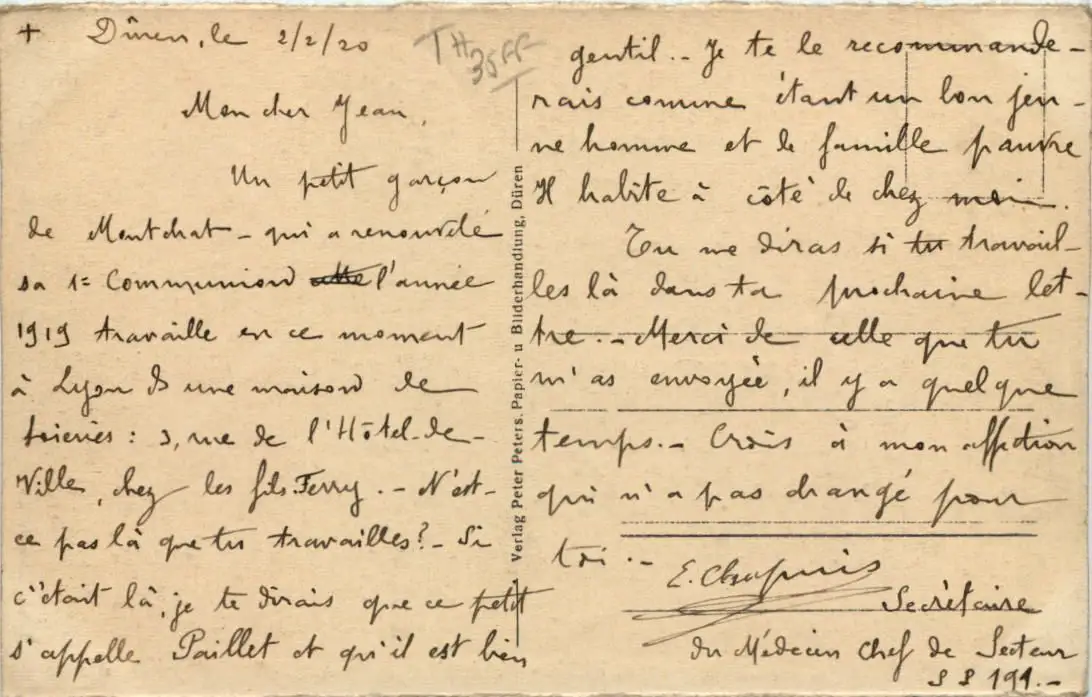 + Düren, le 2/2/20
TH
35FF
Mon cher Jean,
Un petit garçon
de Montchat - qui a renouvelé
sa 1e Communion l'année
1919 travaille en ce moment
à Lyon ds une maison de
soieries : 3, rue de l'Hôtel-de-
Ville, chez les fils Ferry. - N'est-
ce pas là que tu travailles? - Si
c'était là, je te dirais que ce petit
s'appelle Paillet et qu'il est bien
gentil. - Je te le recommande-
rais comme étant un bon jeu-
ne homme et de famille pauvre
Il habite à côté de chez moi.
Tu me diras si tu travail-
les là dans ta prochaine let-
tre. - Merci de celle que tu
m'as envoyée, il y a quelque
temps. - Crois à mon affection
qui n'a pas changé pour
toi. -
E. Chapuis
Secrétaire
du Médecin Chef de Secteur
S P 191. -
Verlag Peter Peters, Papier- u Bilderhandlung, Düren